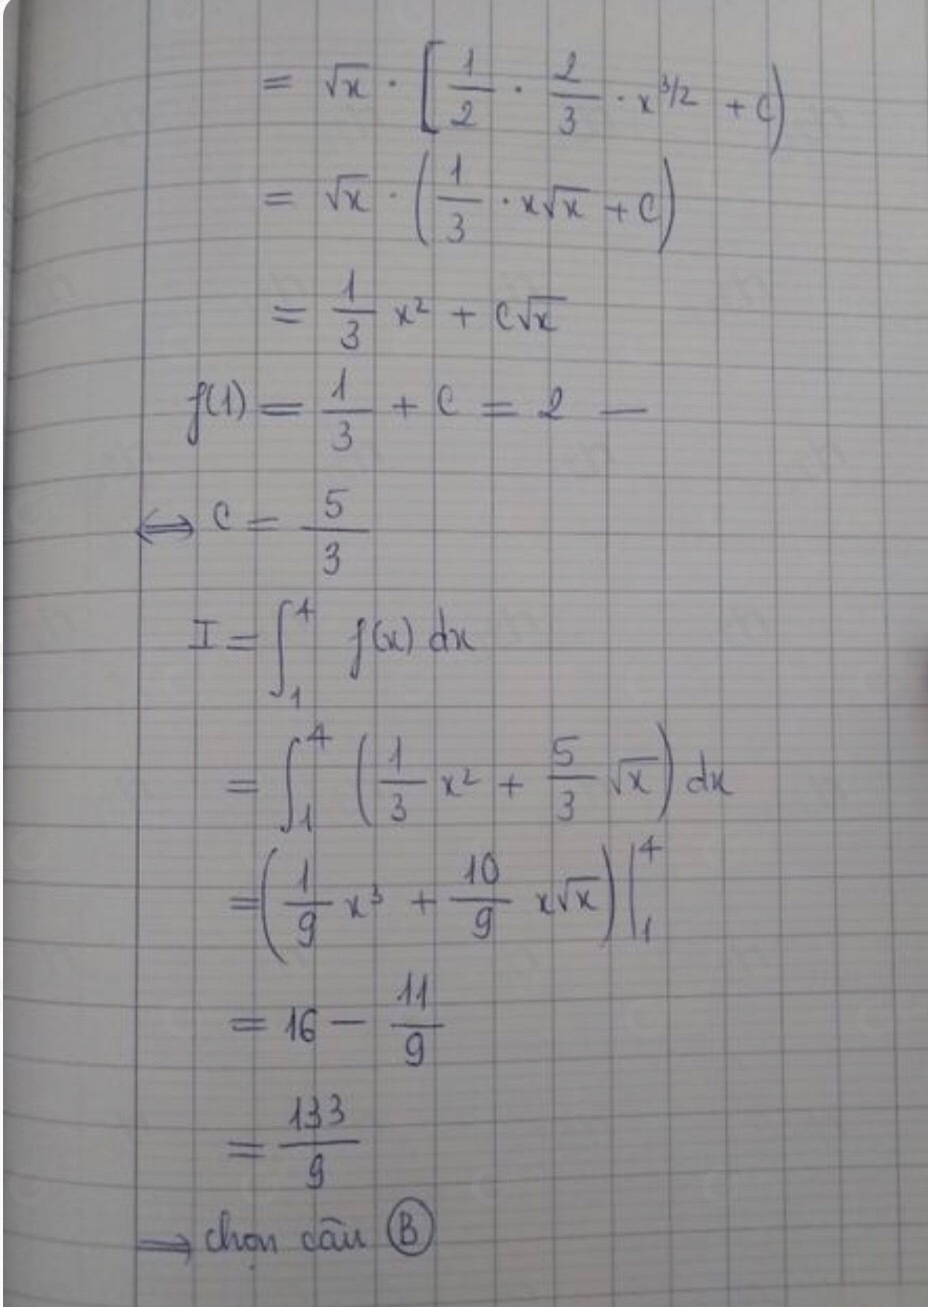 = √x · [1/2 · 2/3 · x^3/2 + C)
= √x · (1/3 · x√x + C)
= 1/3 x² + C√x
f(1) = 1/3 + C = 2 —
⟺ C = 5/3
I = ∫₁⁴ f(x) dx
= ∫₁⁴ (1/3 x² + 5/3 √x) dx
= (1/9 x³ + 10/9 x√x) |₁⁴
= 16 − 11/9
= 133/9
⟹ chọn câu B